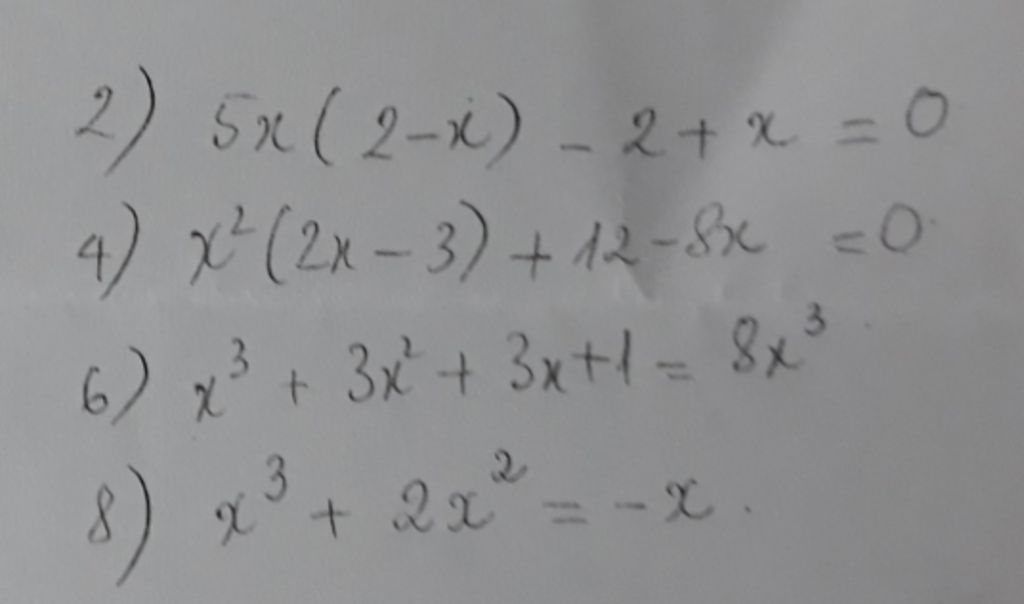 2) 5x(2-x) - 2 + x = 0
4) x²(2x - 3) + 12 - 8x = 0
6) x³ + 3x² + 3x + 1 = 8x³
8) x³ + 2x² = -x.